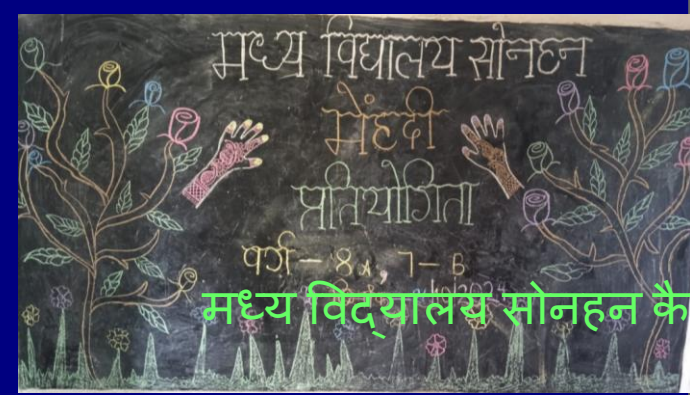 मध्य विद्यालय सोनहन
मेंहदी
प्रतियोगिता
वर्ग – 8A, 7 – B
मध्य विद्यालय सोनहन कै